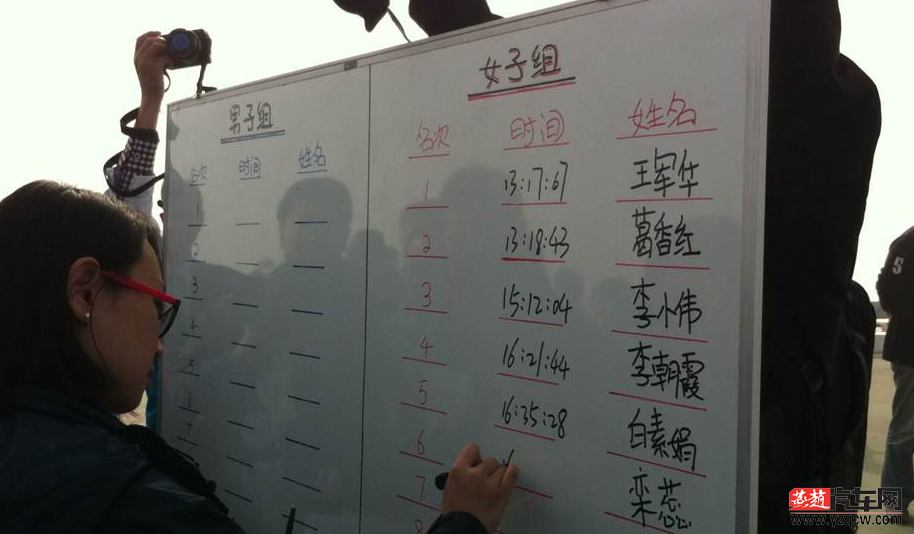 男子组
名次 时间 姓名
1
2
3
4
5
6
7
女子组
名次 时间 姓名
1 13:17:67 王军华
2 13:18:43 葛香红
3 15:12:04 李小伟
4 16:21:44 李朝霞
5 16:35:28 白素娟
6 栾蕊
7
8
燕赵汽车网
www.yzqcw.com